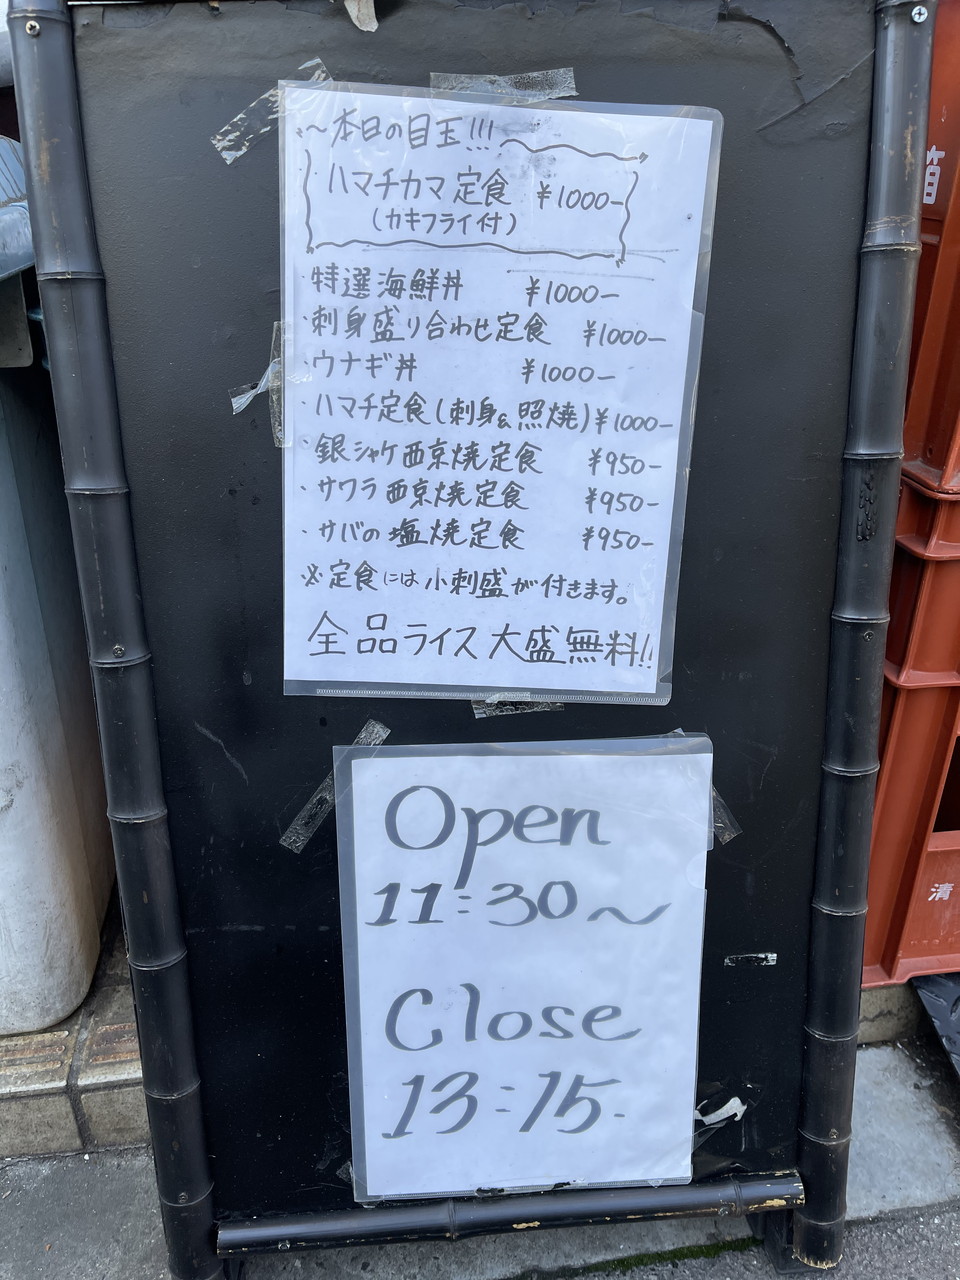 ～本日の目玉!!!
ハマチカマ定食 ¥1000-
(カキフライ付)
・特選海鮮丼 ¥1000-
・刺身盛り合わせ定食 ¥1000-
・ウナギ丼 ¥1000-
・ハマチ定食(刺身&照焼) ¥1000-
・銀シャケ西京焼定食 ¥950-
・サワラ西京焼定食 ¥950-
・サバの塩焼定食 ¥950-
※定食には小刺盛が付きます。
全品ライス大盛無料!!
Open
11:30～
Close
13:15-
箱
清